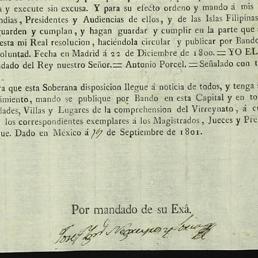 y execute sin excusa. Y para su efecto ordeno y mando á mis
ndias, Presidentes y Audiencias de ellos, y de las Islas Filipinas
guarden y cumplan, y hagan guardar y cumplir en la parte que
esta mi Real resolucion, haciéndola circular y publicar por Bando
oluntad. Fecha en Madrid á 22 de Diciembre de 1800. = YO EL
dado del Rey nuestro Señor. = Antonio Porcel. = Señalado con t
ra que esta Soberana disposicion llegue á noticia de todos, y tenga
imiento, mando se publique por Bando en esta Capital y en to
dades, Villas y Lugares de la comprehension del Vireynato, á c
los correspondientes exemplares á los Magistrados, Jueces y Pre
que. Dado en México á de Septiembre de 1801.
Por mandado de su Exâ.